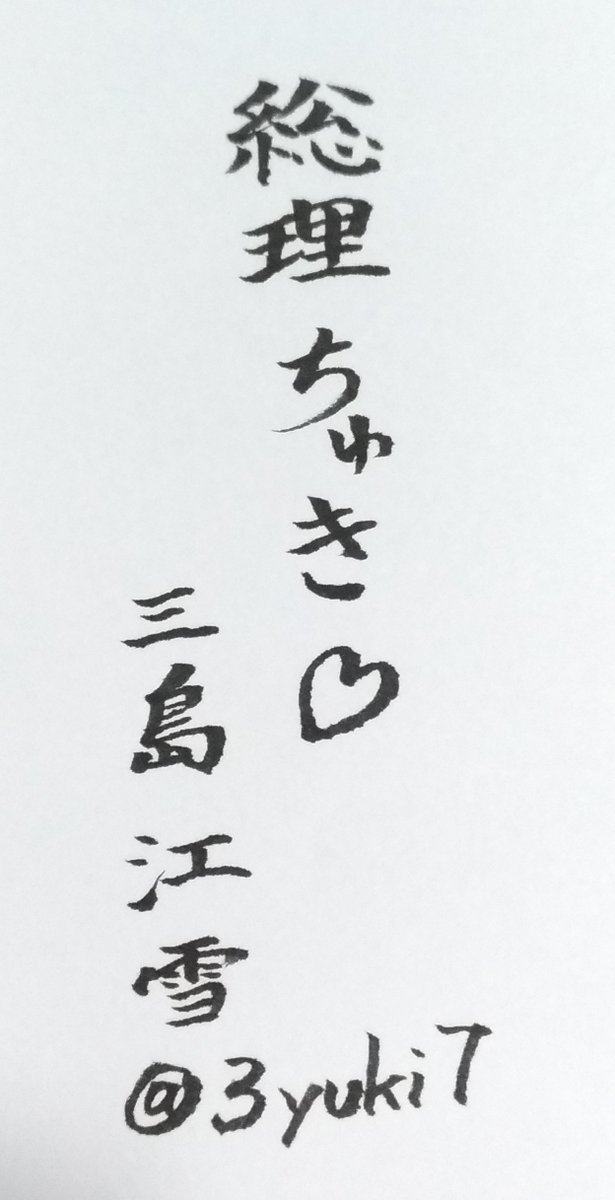 総理ちゅき♡
三島江雪
@3yuki7